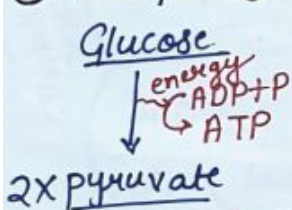 Glucose
energy
ADP+P
ATP
2X pyruvate